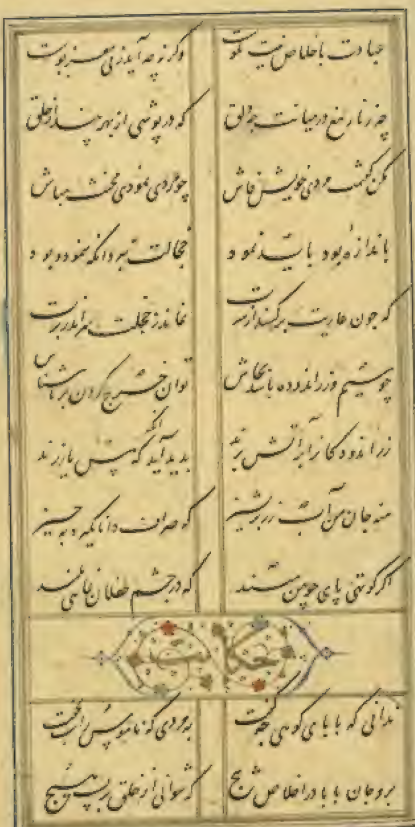 عبادت باخلاص نیت نکوست وگرنه چه آید ز بی مغز پوست
چه زنار مغ در میانت چه دلق که در پوشی از بهر پندار خلق
مکن گفتمت مردی خویش فاش چو مردی نمودی مخنث مباش
باندازه بود باید نمود خجالت نبرد آنکه ننمود و بود
که چون عاریت برکشند از سرت نماند ز خجلت سر اندر برت
چو سیم زراندوده باشد نحاس توان خرج کردن بر ناشناس
زراندودگانرا بآتش برند پدید آید آنگه که مس یا زرند
منه جان من آب زر بر پشیز که صراف دانا نگیرد به چیز
اگر کوتهی پای چوبین مبند که در چشم طفلان نمایی بلند
حکایت
ندانی که بابای کوهی چه گفت بمردی که ناموس را شب نخفت
برو جان بابا در اخلاص پیچ که نتوانی از خلق بر بست هیچ